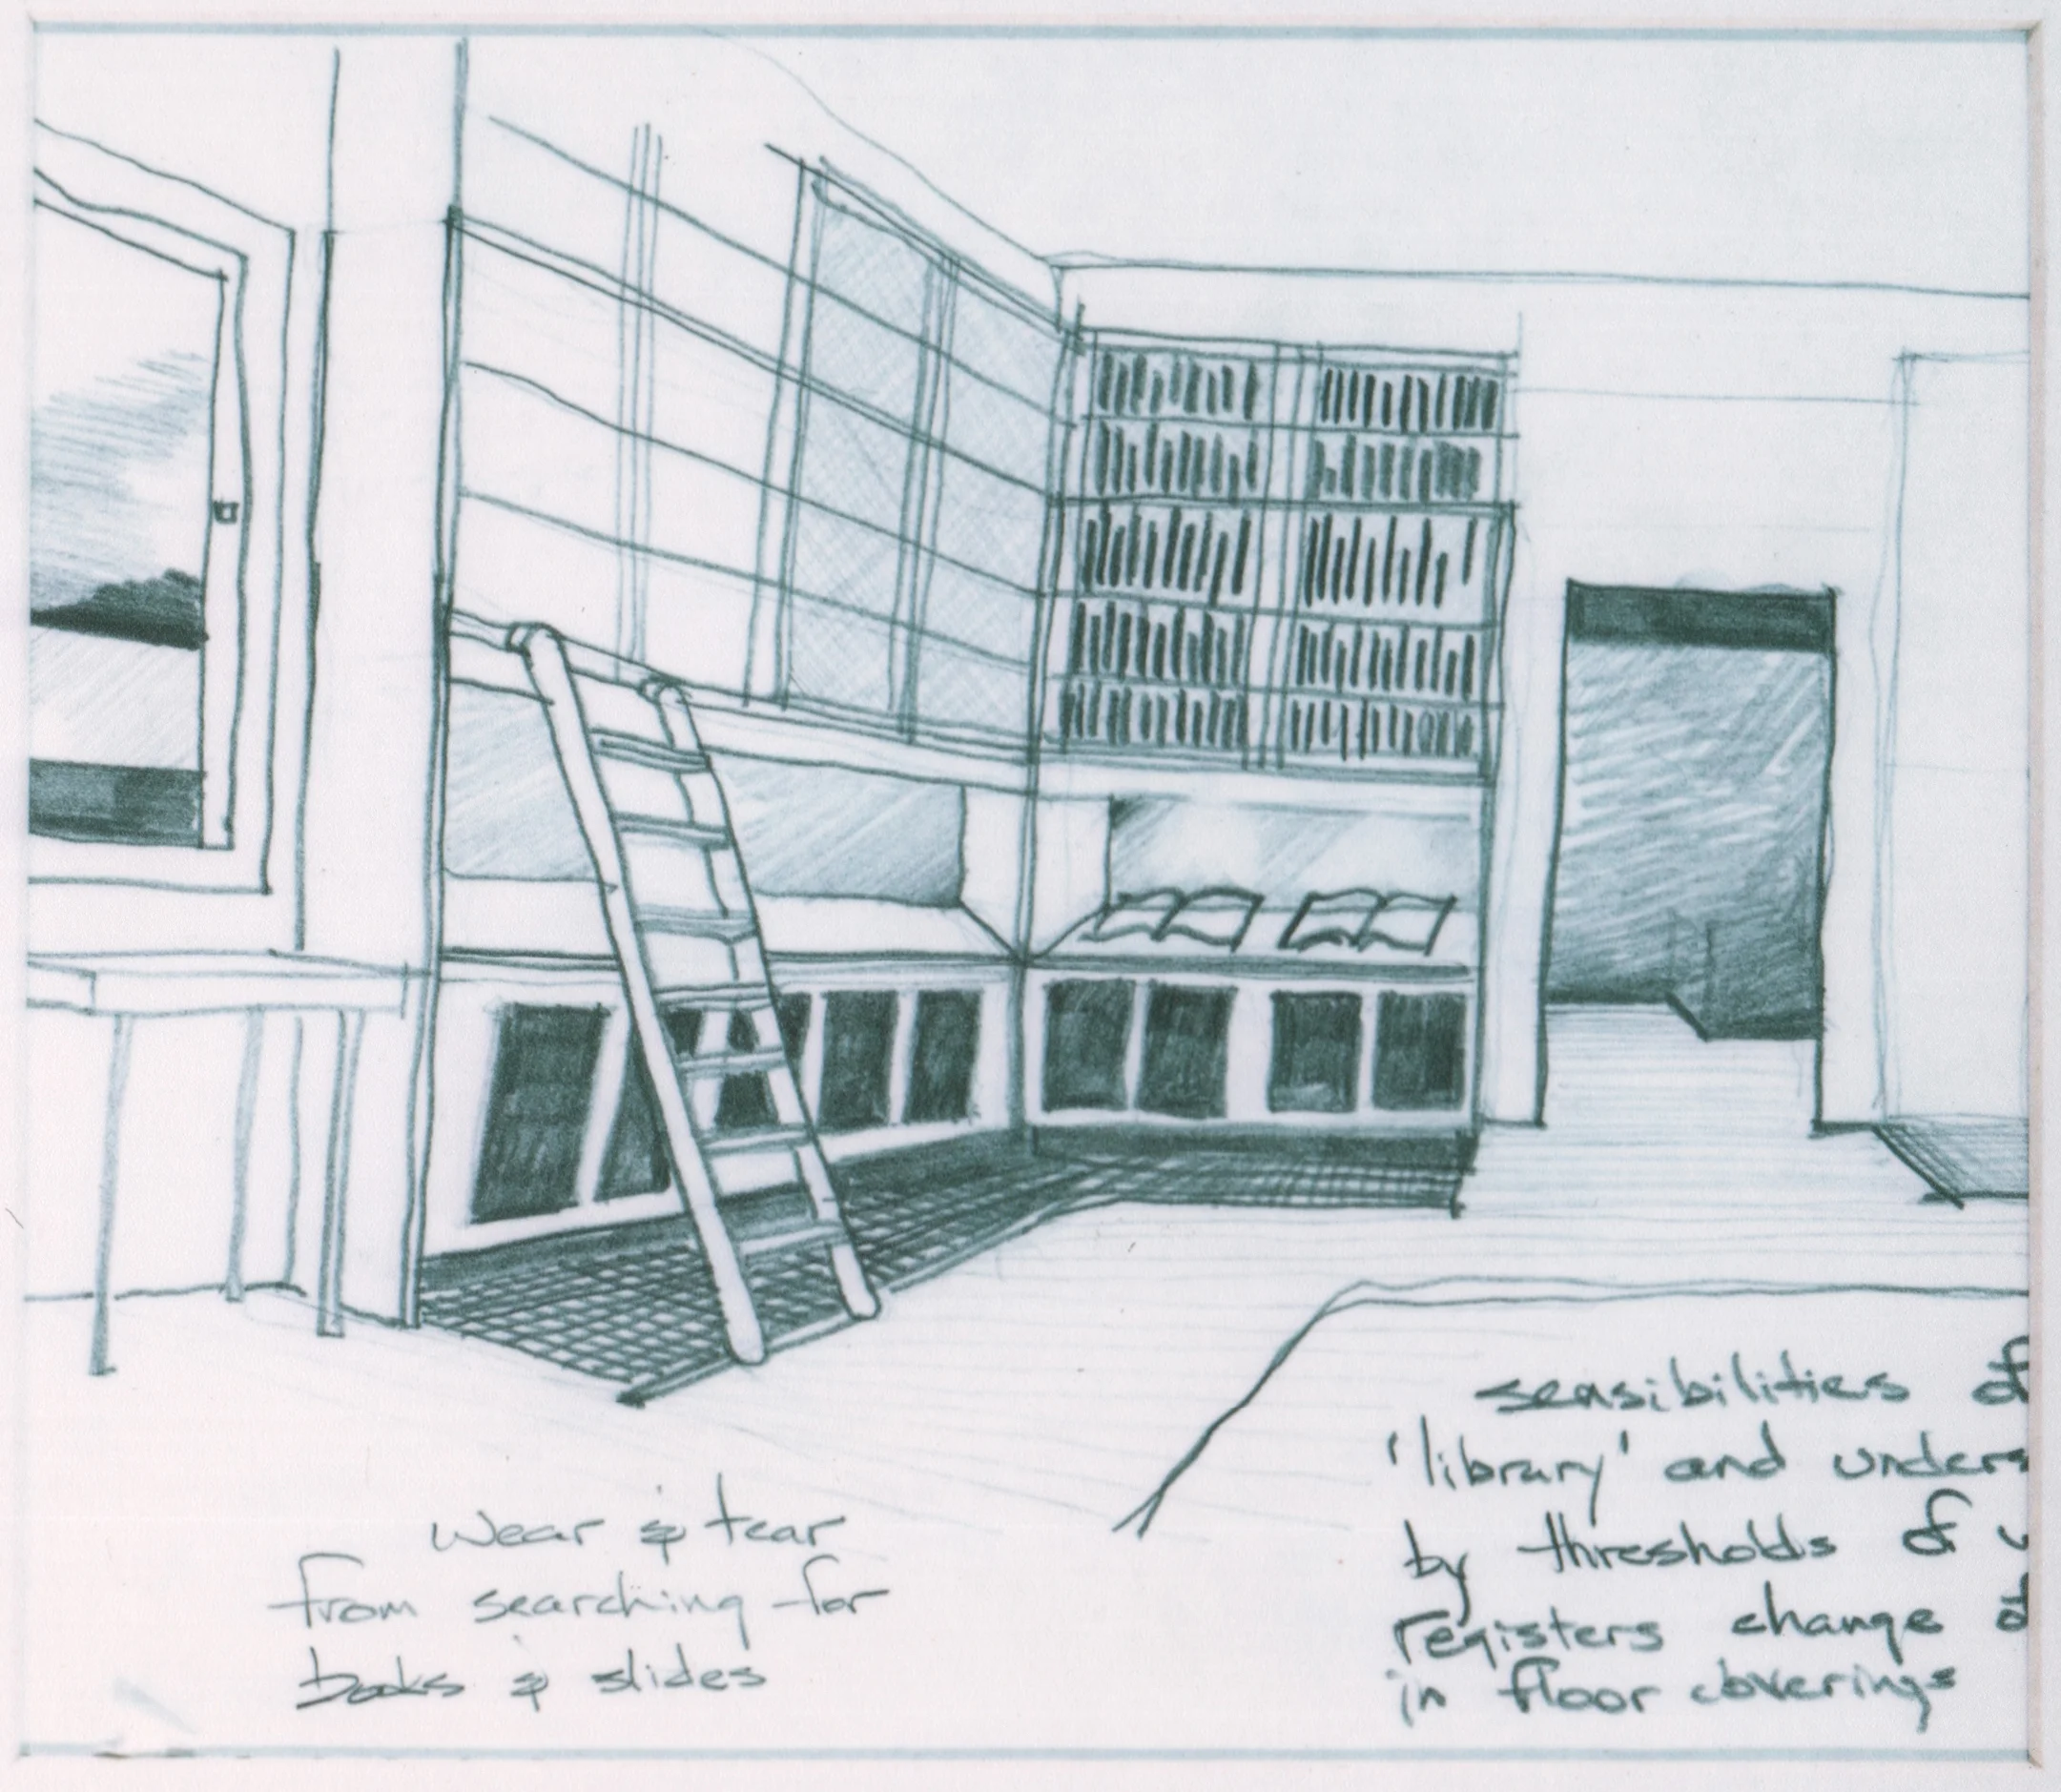 wear & tear
from searching for
books & slides
sensibilities of
'library' and unders
by thresholds of
registers change of
in floor coverings